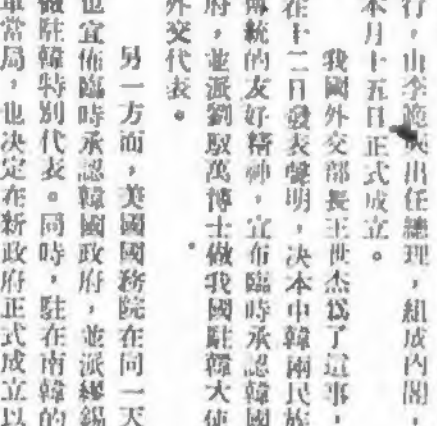 行，由李晚　出任總理，組成內閣，
本月十五日正式成立。
我國外交部長王世杰爲了這事，
在十二日發表聲明，决本中韓兩民族
傳統的友好精神，宣布臨時承認韓國
府，並派劉馭萬博士做我國駐韓大使
外交代表。
另一方面，美國國務院在同一天
也宣佈臨時承認韓國政府，並派繆錫
做駐韓特別代表。同時，駐在南韓的
軍當局，也决定在新政府正式成立以